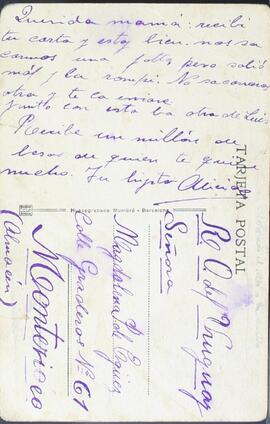 Querida mamá: recibi
tu carta y estoy bien. nos sa
camos una foto pero salió
mal y la rompi. No sacaremos
otra y te la enviare
junto con esta va otra de Luis
Recibe un millón de
besos de quien te quiere
mucho. Tu hijita Alicia
TARJETA POSTAL
Huecograbado Mumbrú - Barcelona
R. O. del Uruguay
Señora
Magdalena de
Calle Nº 61
Montevideo